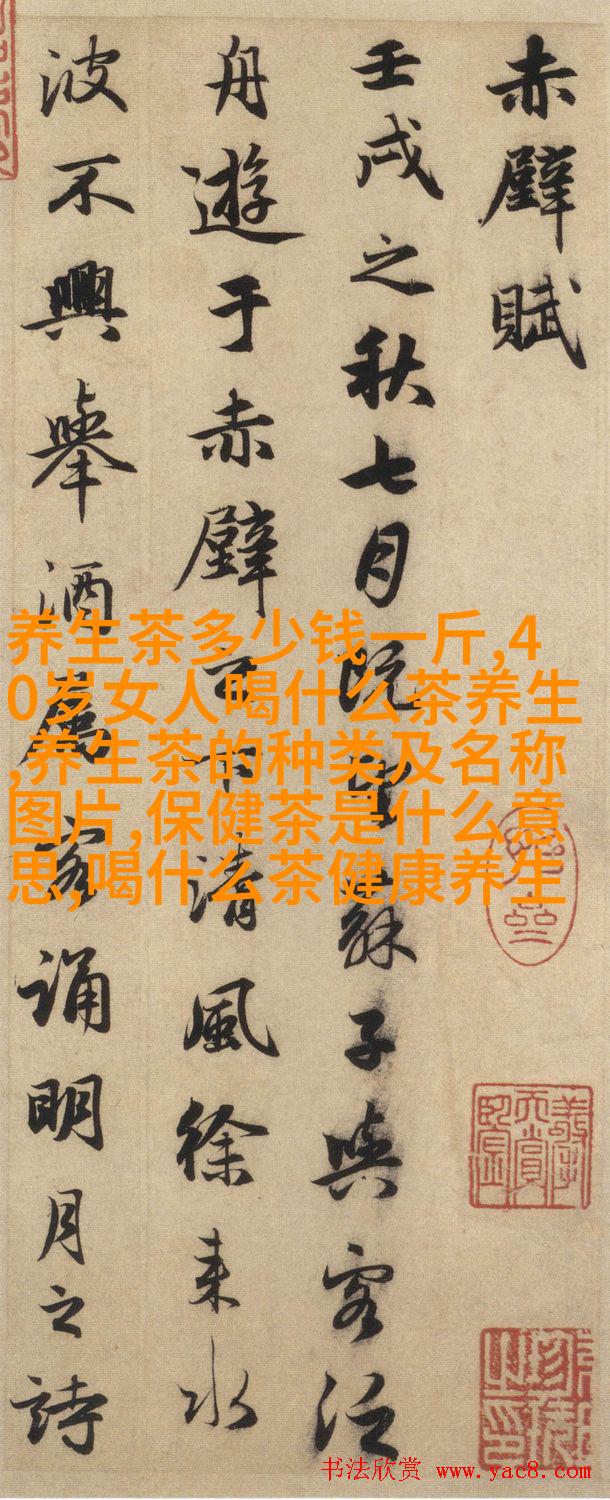 赤壁賦
壬戌之秋七月既望蘇子與客泛
舟遊于赤壁之下清風徐来水
波不興舉酒屬客誦明月之詩
养生茶多少钱一斤,4
0岁女人喝什么茶养生
,养生茶的种类及名称
图片,保健茶是什么意
思,喝什么茶健康养生
书法欣赏 www.yac8.com